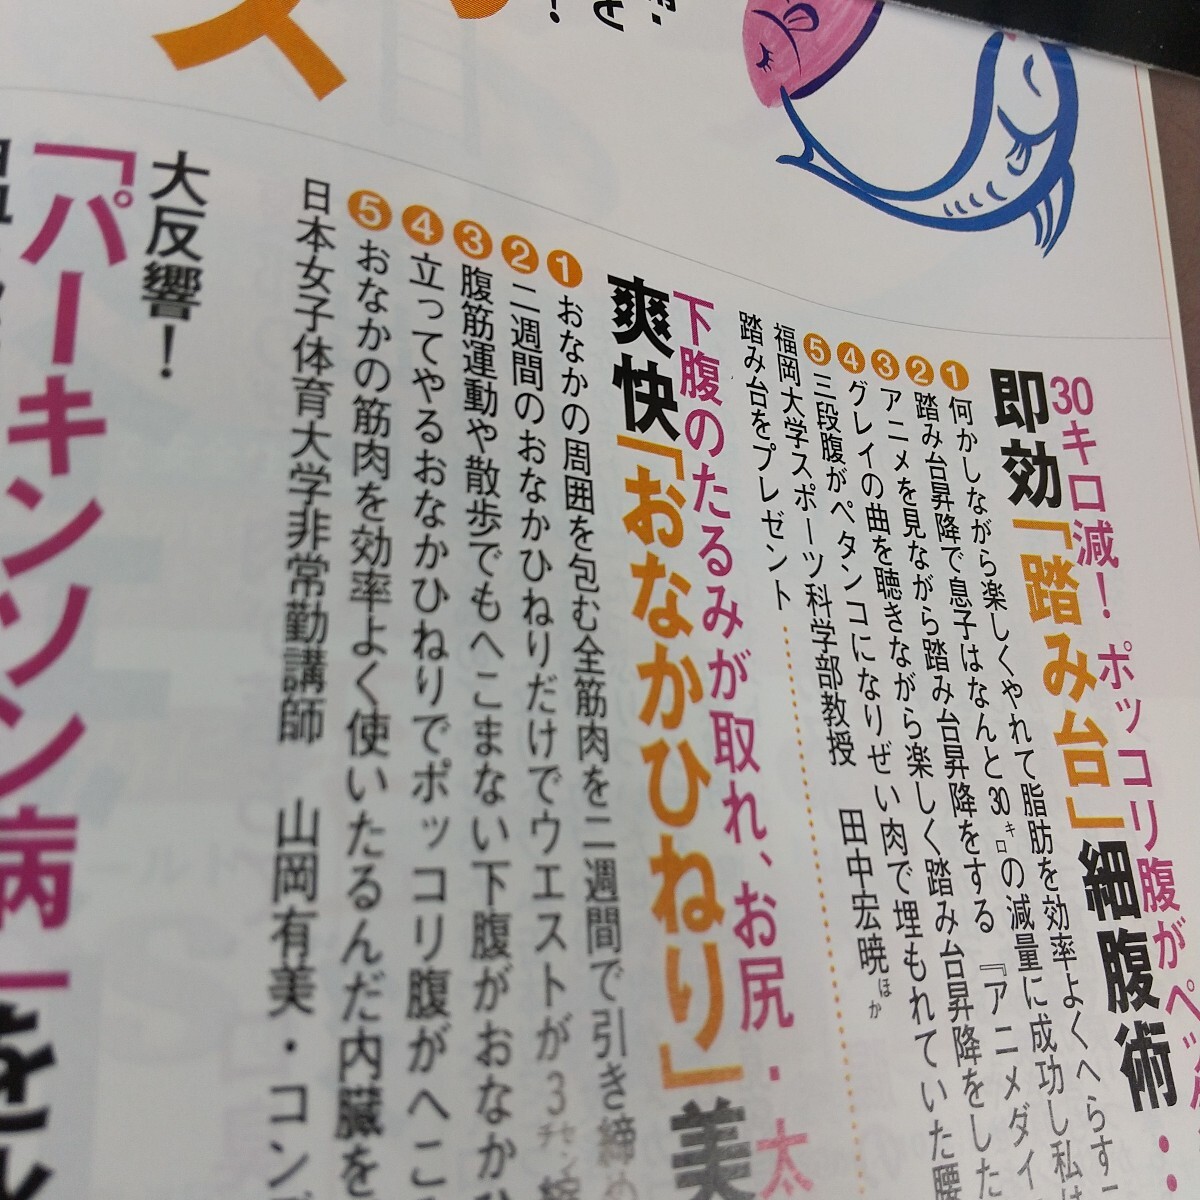 30キロ減！ポッコリ腹がペッタ
即効「踏み台」細腹術
1 何かしながら楽しくやれて脂肪を効率よくへらす
2 踏み台昇降で息子はなんと30キロの減量に成功し私は
3 アニメを見ながら踏み台昇降をする『アニメダイ
4 グレイの曲を聴きながら楽しく踏み台昇降をした
5 三段腹がペタンコになりぜい肉で埋もれていた腰
福岡大学スポーツ科学部教授 田中宏暁ほか
踏み台をプレゼント
下腹のたるみが取れ、お尻・太
爽快「おなかひねり」美
1 おなかの周囲を包む全筋肉を二週間で引き締め
2 二週間のおなかひねりだけでウエストが3センチ
3 腹筋運動や散歩でもへこまない下腹がおなかひ
4 立ってやるおなかひねりでポッコリ腹がへこ
5 おなかの筋肉を効率よく使いたるんだ内臓を
日本女子体育大学非常勤講師 山岡有美・コン
大反響！
「パーキンソン病」を